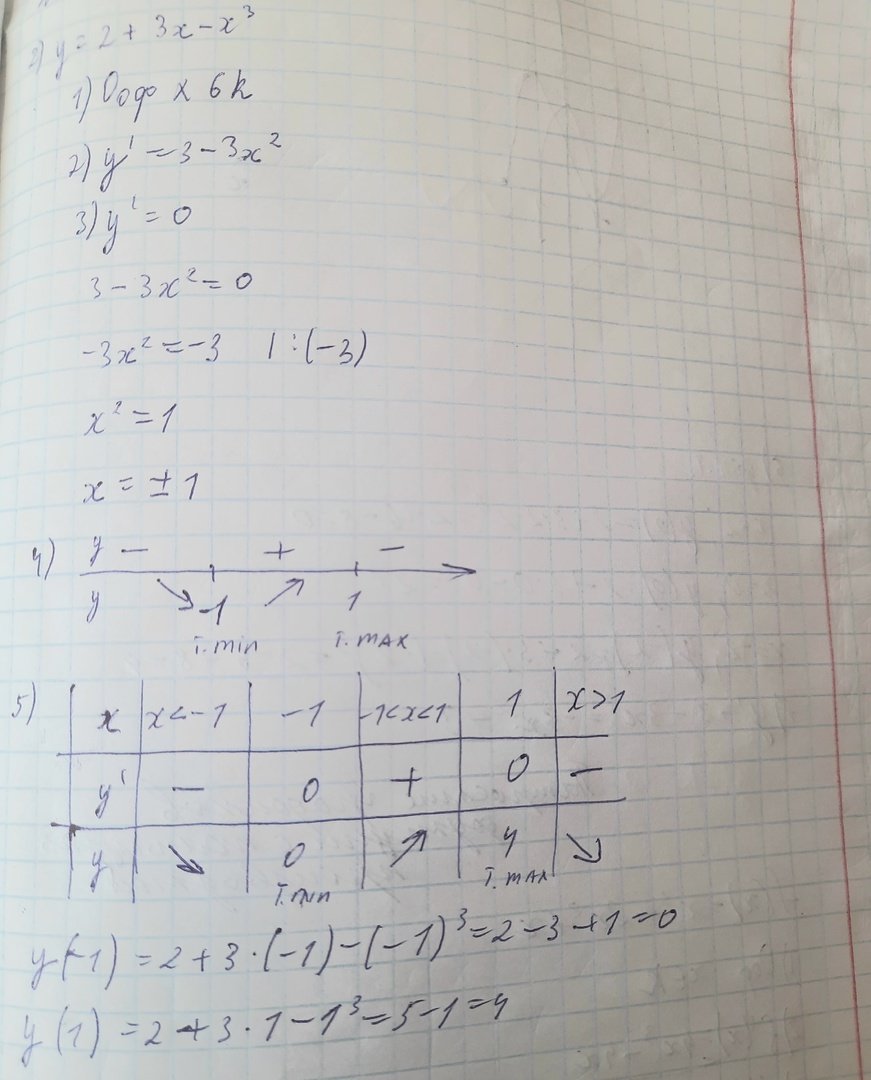 2) y = 2 + 3x - x³
1) Ооф x б k
2) y' = 3 - 3x²
3) y' = 0
3 - 3x² = 0
-3x² = -3 | : (-3)
x² = 1
x = ± 1
4) y - + -
y -1 1
т. min т. max
5) x x<-1 -1 -1<x<1 1 x>1
y' - 0 + 0 -
y ↘ 0 ↗ 4 ↘
т. min т. max
y(-1) = 2 + 3 · (-1) - (-1)³ = 2 - 3 + 1 = 0
y(1) = 2 + 3 · 1 - 1³ = 5 - 1 = 4